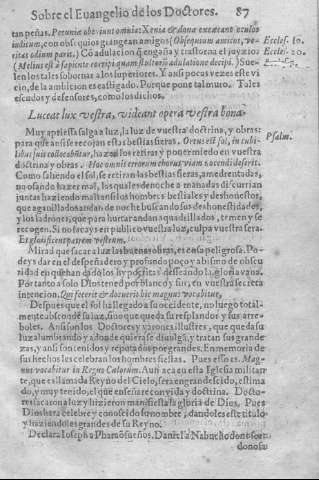 Sobre el Euangelio de los Doctores. 87
tan peñas. Pecuniæ obediunt omnia: Xenia & dona excæcant oculos
iudicum, con obsequios grangean amigos (Obsequium amicos, ve-
ritas odium parit.) Cō adulacion se engaña y trastorna el juyzio:
(Melius est à sapiente corripi quam stultorū adulatione decipi.) Sue-
len los tales sobornar a los superiores. Y assi pocas vezes este vi-
cio, de la ambicion es castigado. Porque pone tal muro. Tales
escudos y defensores, como los dichos.
Eccles. 10.
Eccles. 20.
Luceat lux vestra, videant opera vestra bona
Muy apriessa salga la luz, la luz de vuestra doctrina, y obras:
para que ansi se recojan estas bestias fieras. Ortus est sol, in cubi-
libus suis collocabūtur, hazed los retirar y poner miedo en vuestra
doctrina y obras. Hac omnis errorum chorus viam nocendi deserit.
Como saliendo el sol, se retiran las bestias fieras, amedrentadas,
no osando hazer mal, los quales de noche a manadas discurrian
juntas haziendo mal: ansi los hombres bestiales y deshonestos,
que aquadrillados andan de noche buscando sus deshonestidades,
y los ladrones, que para hurtar andan aquadrillados, temen y se
recogen. Si no sacays en publico vuestra luz, culpa vuestra sera.
Et glorificent patrem vestrum.
Psalm.
Mirad que sacar a luz las buenas obras, es cosa peligrosa. Po-
deys dar en el despeñadero y profundo poço y abismo de obscu
ridad en que han caido los hypocritas desseando la gloria vana.
Por tanto a solo Dios tened por blanco y fin, en vuestra secreta
intencion. Qui fecerit & docuerit hic magnus vocabitur,
Despues que el sol ha llegado a su occidente, no luego total-
mente absconde su luz, sino que queda su resplandor y sus arre-
boles. Ansi son los Doctores y varones illustres, que queda su
luz alumbrando y adonde quiera se diuulga, y tratan sus grande
zas, y ansi son tenidos y reputados por grandes. En memoria de
sus hechos les celebran los hombres fiestas. Pues esso es. Mag-
nus vocabitur in Regno Cælorum. Aun aca en esta Iglesia militan-
te, que es llamada Reyno del Cielo, sera engrandecido, estima
do, y muy tenido, el que enseñare con vida y doctrina. Docto-
res sacaron a luz y hizieron manifiesta la gloria de Dios. Pues
Dios hara celebre y conoscido su nombre, dandoles este titulo
y haziendoles grandes de su Reyno.
Declara Ioseph a Pharaō sueños. Daniel a Nabuchodonosor
donosu